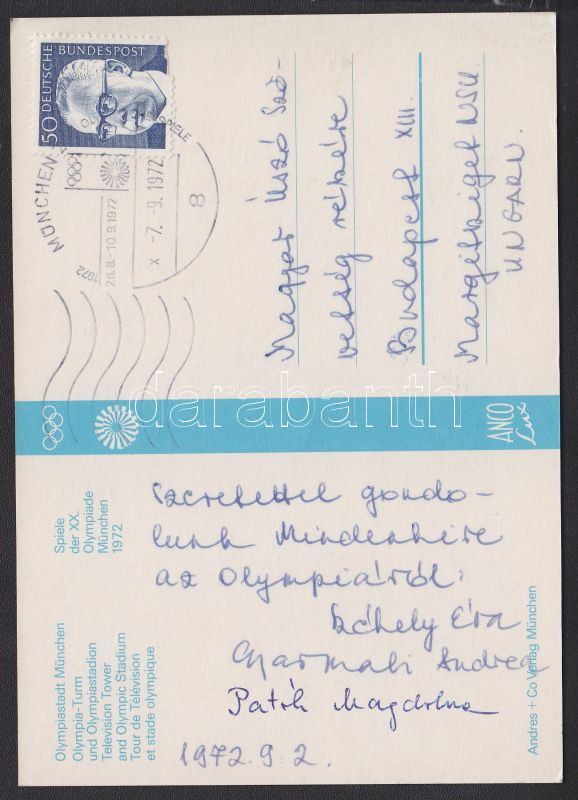 Olympiastadt München
Olympia-Turm
und Olympiastadion
Television Tower
and Olympic Stadium
Tour de Télévision
et stade olympique
Spiele
der XX.
Olympiade
München
1972
Szeretettel gondo-
lunk Mindenkire
az Olympiáról:
Széhely Éva
Gyarmati Andrea
Patóh Magdolna
1972.9.2.
Andres + Co Verlag München
ANCO
Lux
50 DEUTSCHE BUNDESPOST
MÜNCHEN
SPIELE
1972
26.8.-10.9.1972
x -7.9.1972
8
Magyar Úszó Szö-
vetség részére
Budapest XIII.
Margitsziget NSU
UNGARN.
darabanth